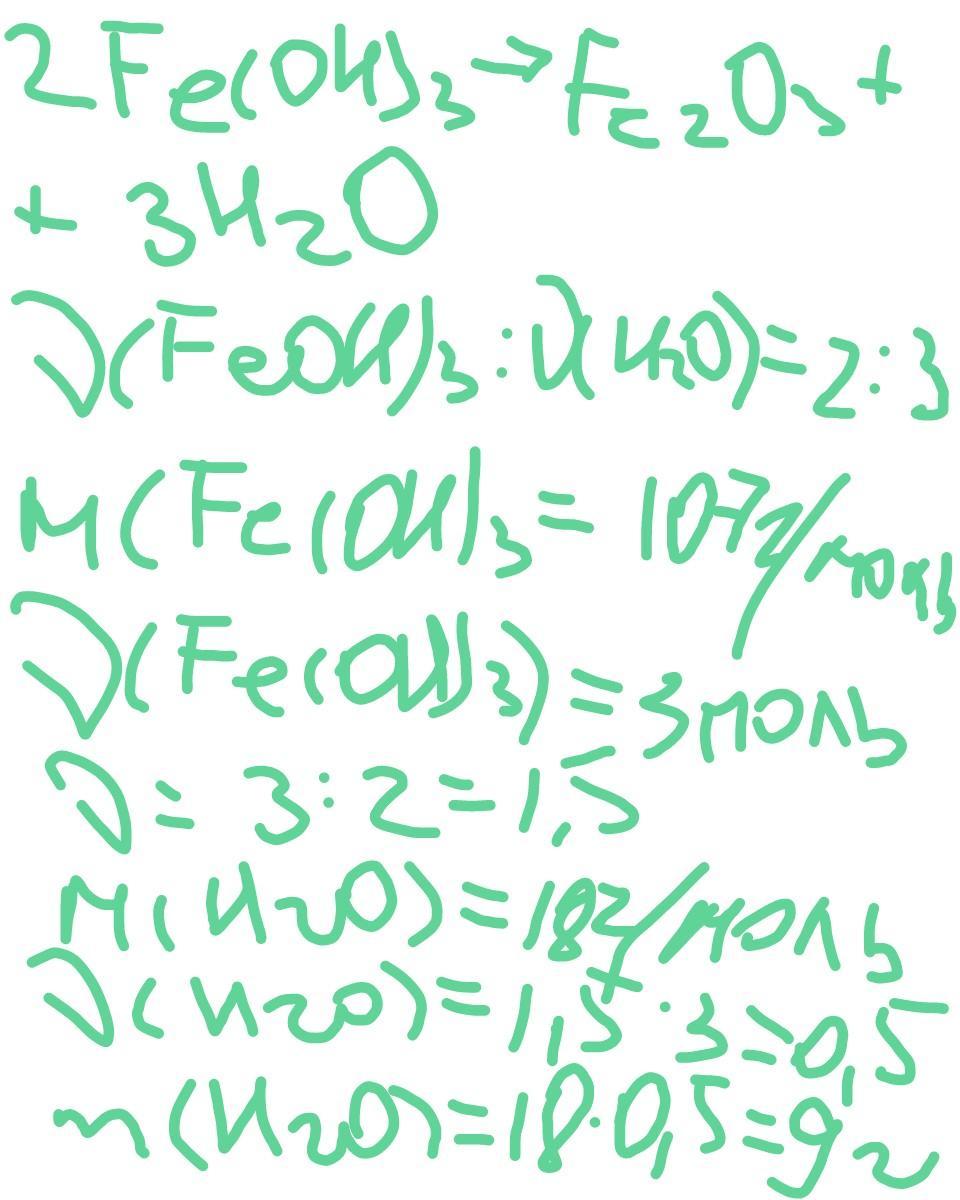 2Fe(OH)3 → Fe2O3 +
+ 3H2O
ν(FeOH)3 : ν(H2O) = 2:3
M(Fe(OH)3 = 107г/моль
ν(Fe(OH)3) = 3моль
ν = 3:2 = 1,5
M(H2O) = 18г/моль
ν(H2O) = 1,5 : 3 = 0,5
m(H2O) = 18·0,5 = 9г